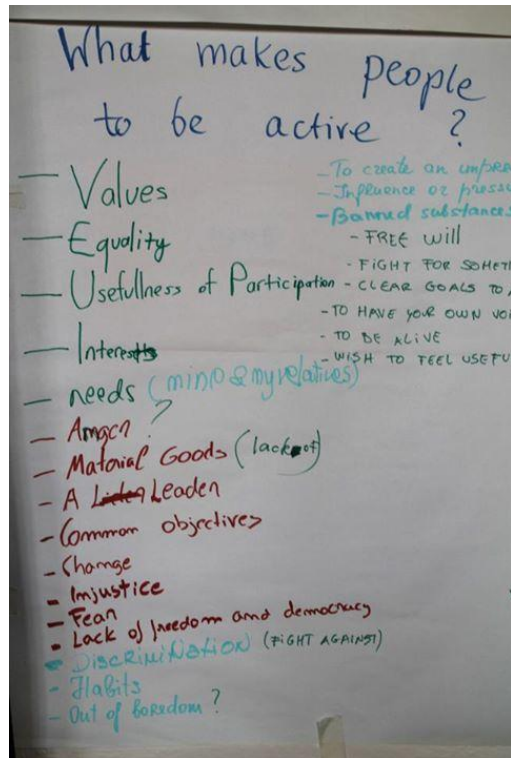 What makes people
to be active ?
— Values
— Equality
— Usefullness of Participation
— Interests
— needs (mine & my relatives)
— Amgen ?
— Material Goods (lack of)
— A Leaden
— Common objectives
— Change
— Imjustice
— Fean
— Lack of freedom and democracy
— Discrimination (FIGHT AGAINST)
- Habits
- Out of boredom ?
- To create an impre
- Influence or pressu
- Banned substances
- FREE will
- FIGHT FOR SOMET
- CLEAR GOALS TO
- TO HAVE YOUR OWN VO
- TO BE ALIVE
- WISH TO FEEL USEFU